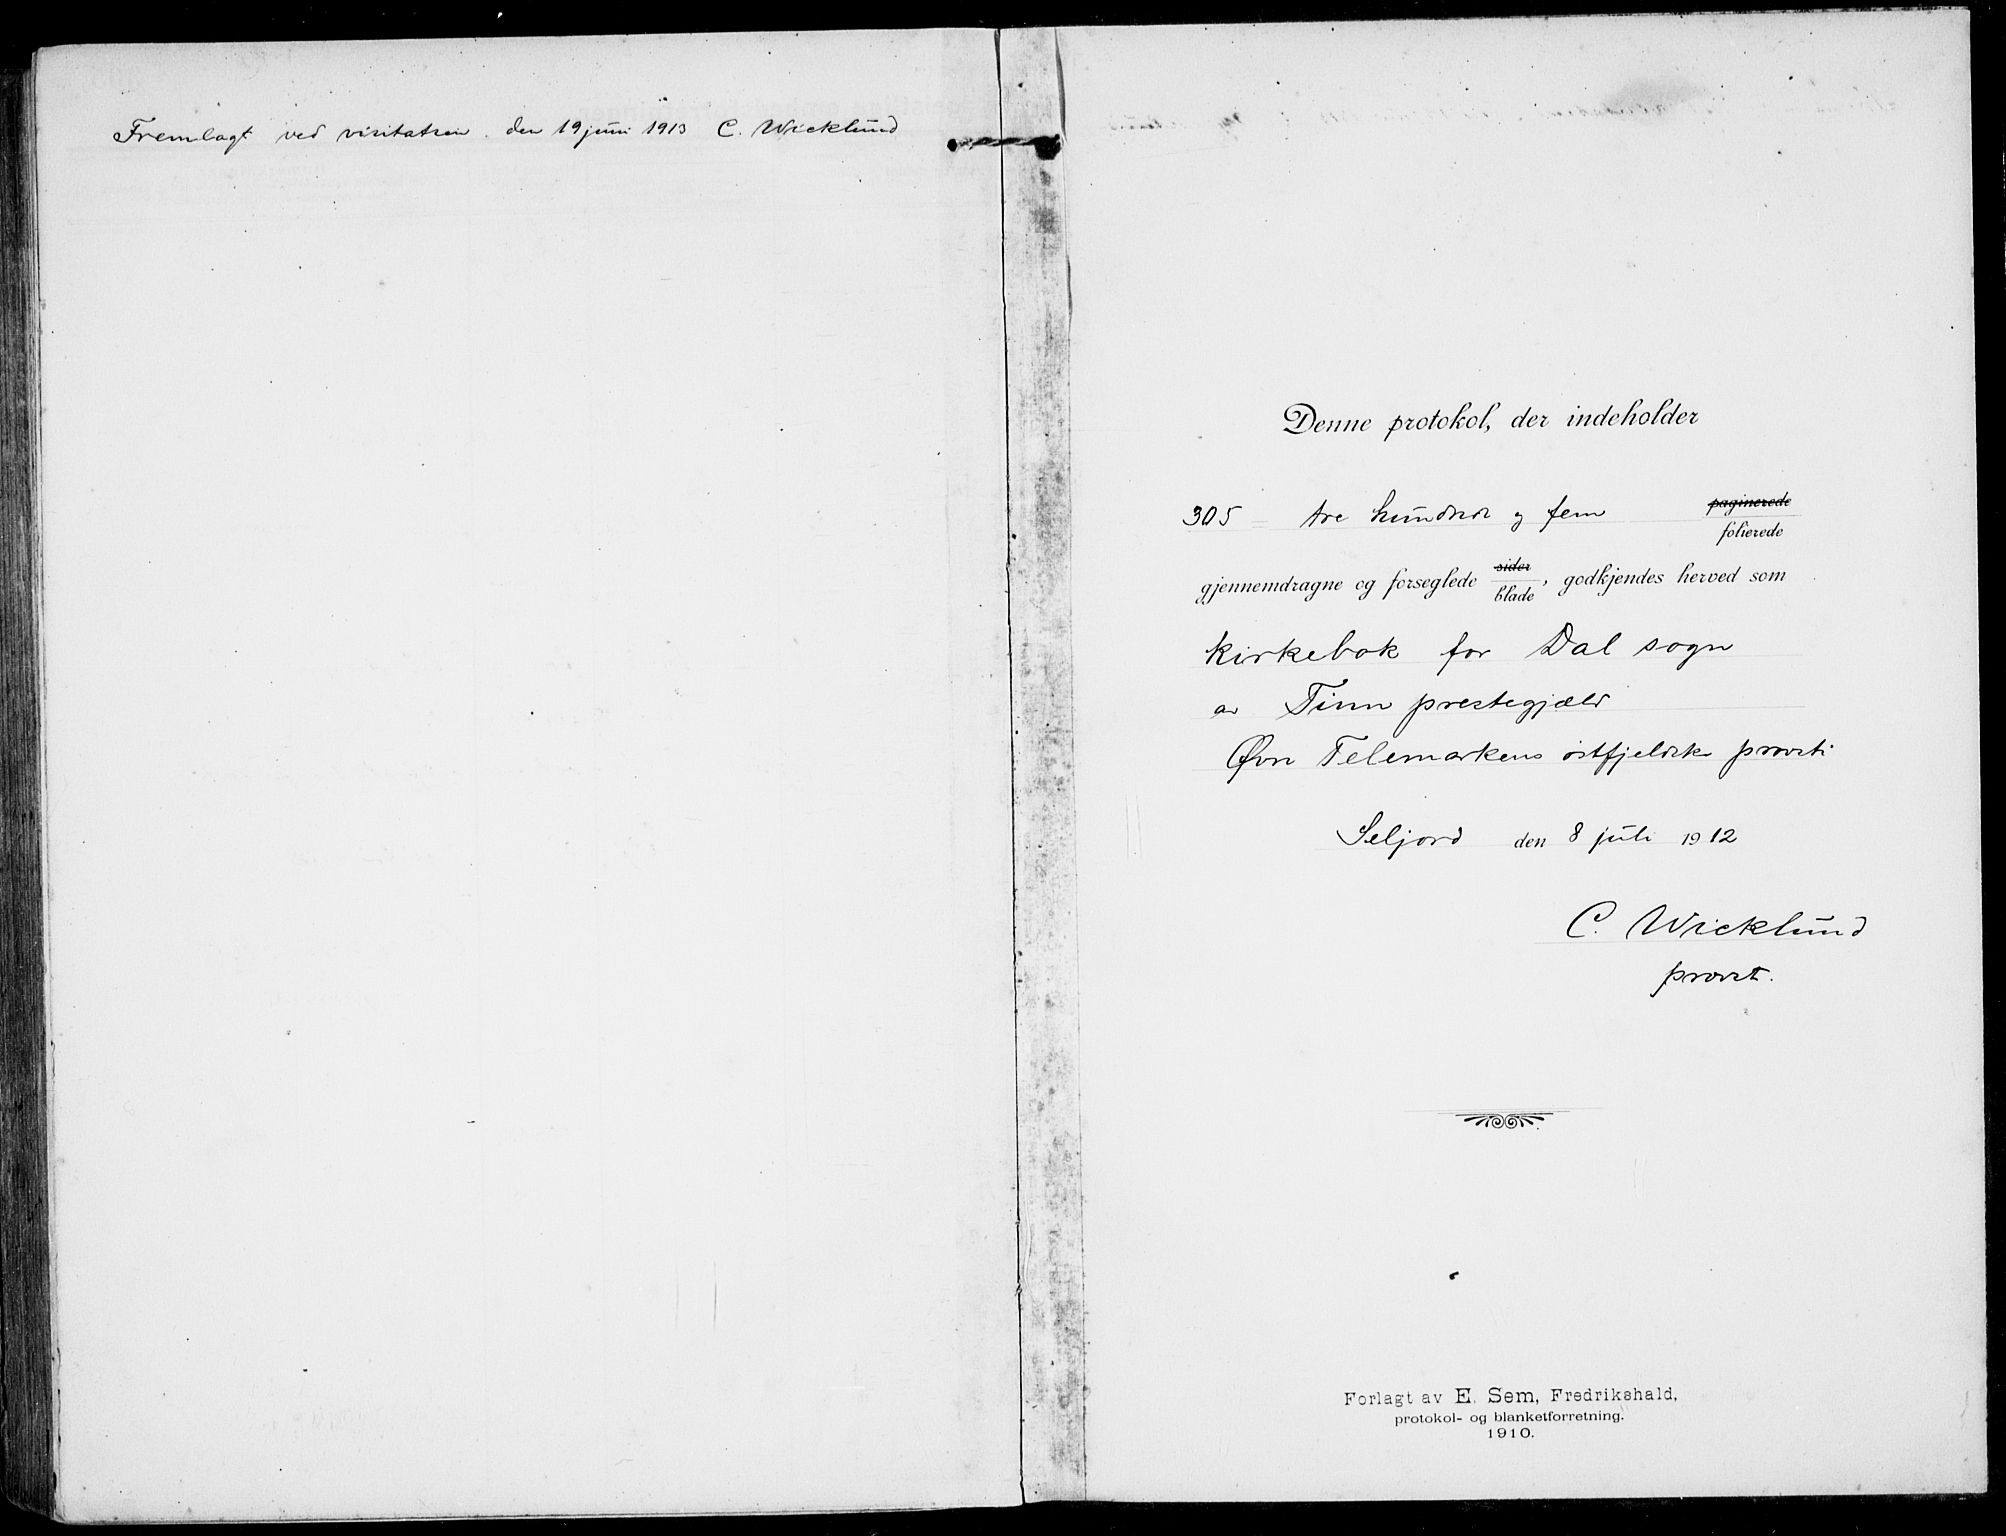 Fremlagt ved visitatsen den 19 juni 1913 C. Wicklund
Denne protokol, der indeholder
305 = tre hundrede og fem paginerede
folierede
gjennemdragne og forseglede sider
blade, godkjendes herved som
kirkebok for Dal sogn
av Tinn prestegjæld
Øvre Telemarkens østfjeldske provsti
Seljord den 8 juli 1912
C. Wicklund
provst.
Forlagt av E. Sem, Fredrikshald,
protokol- og blanketforretning.
1910.